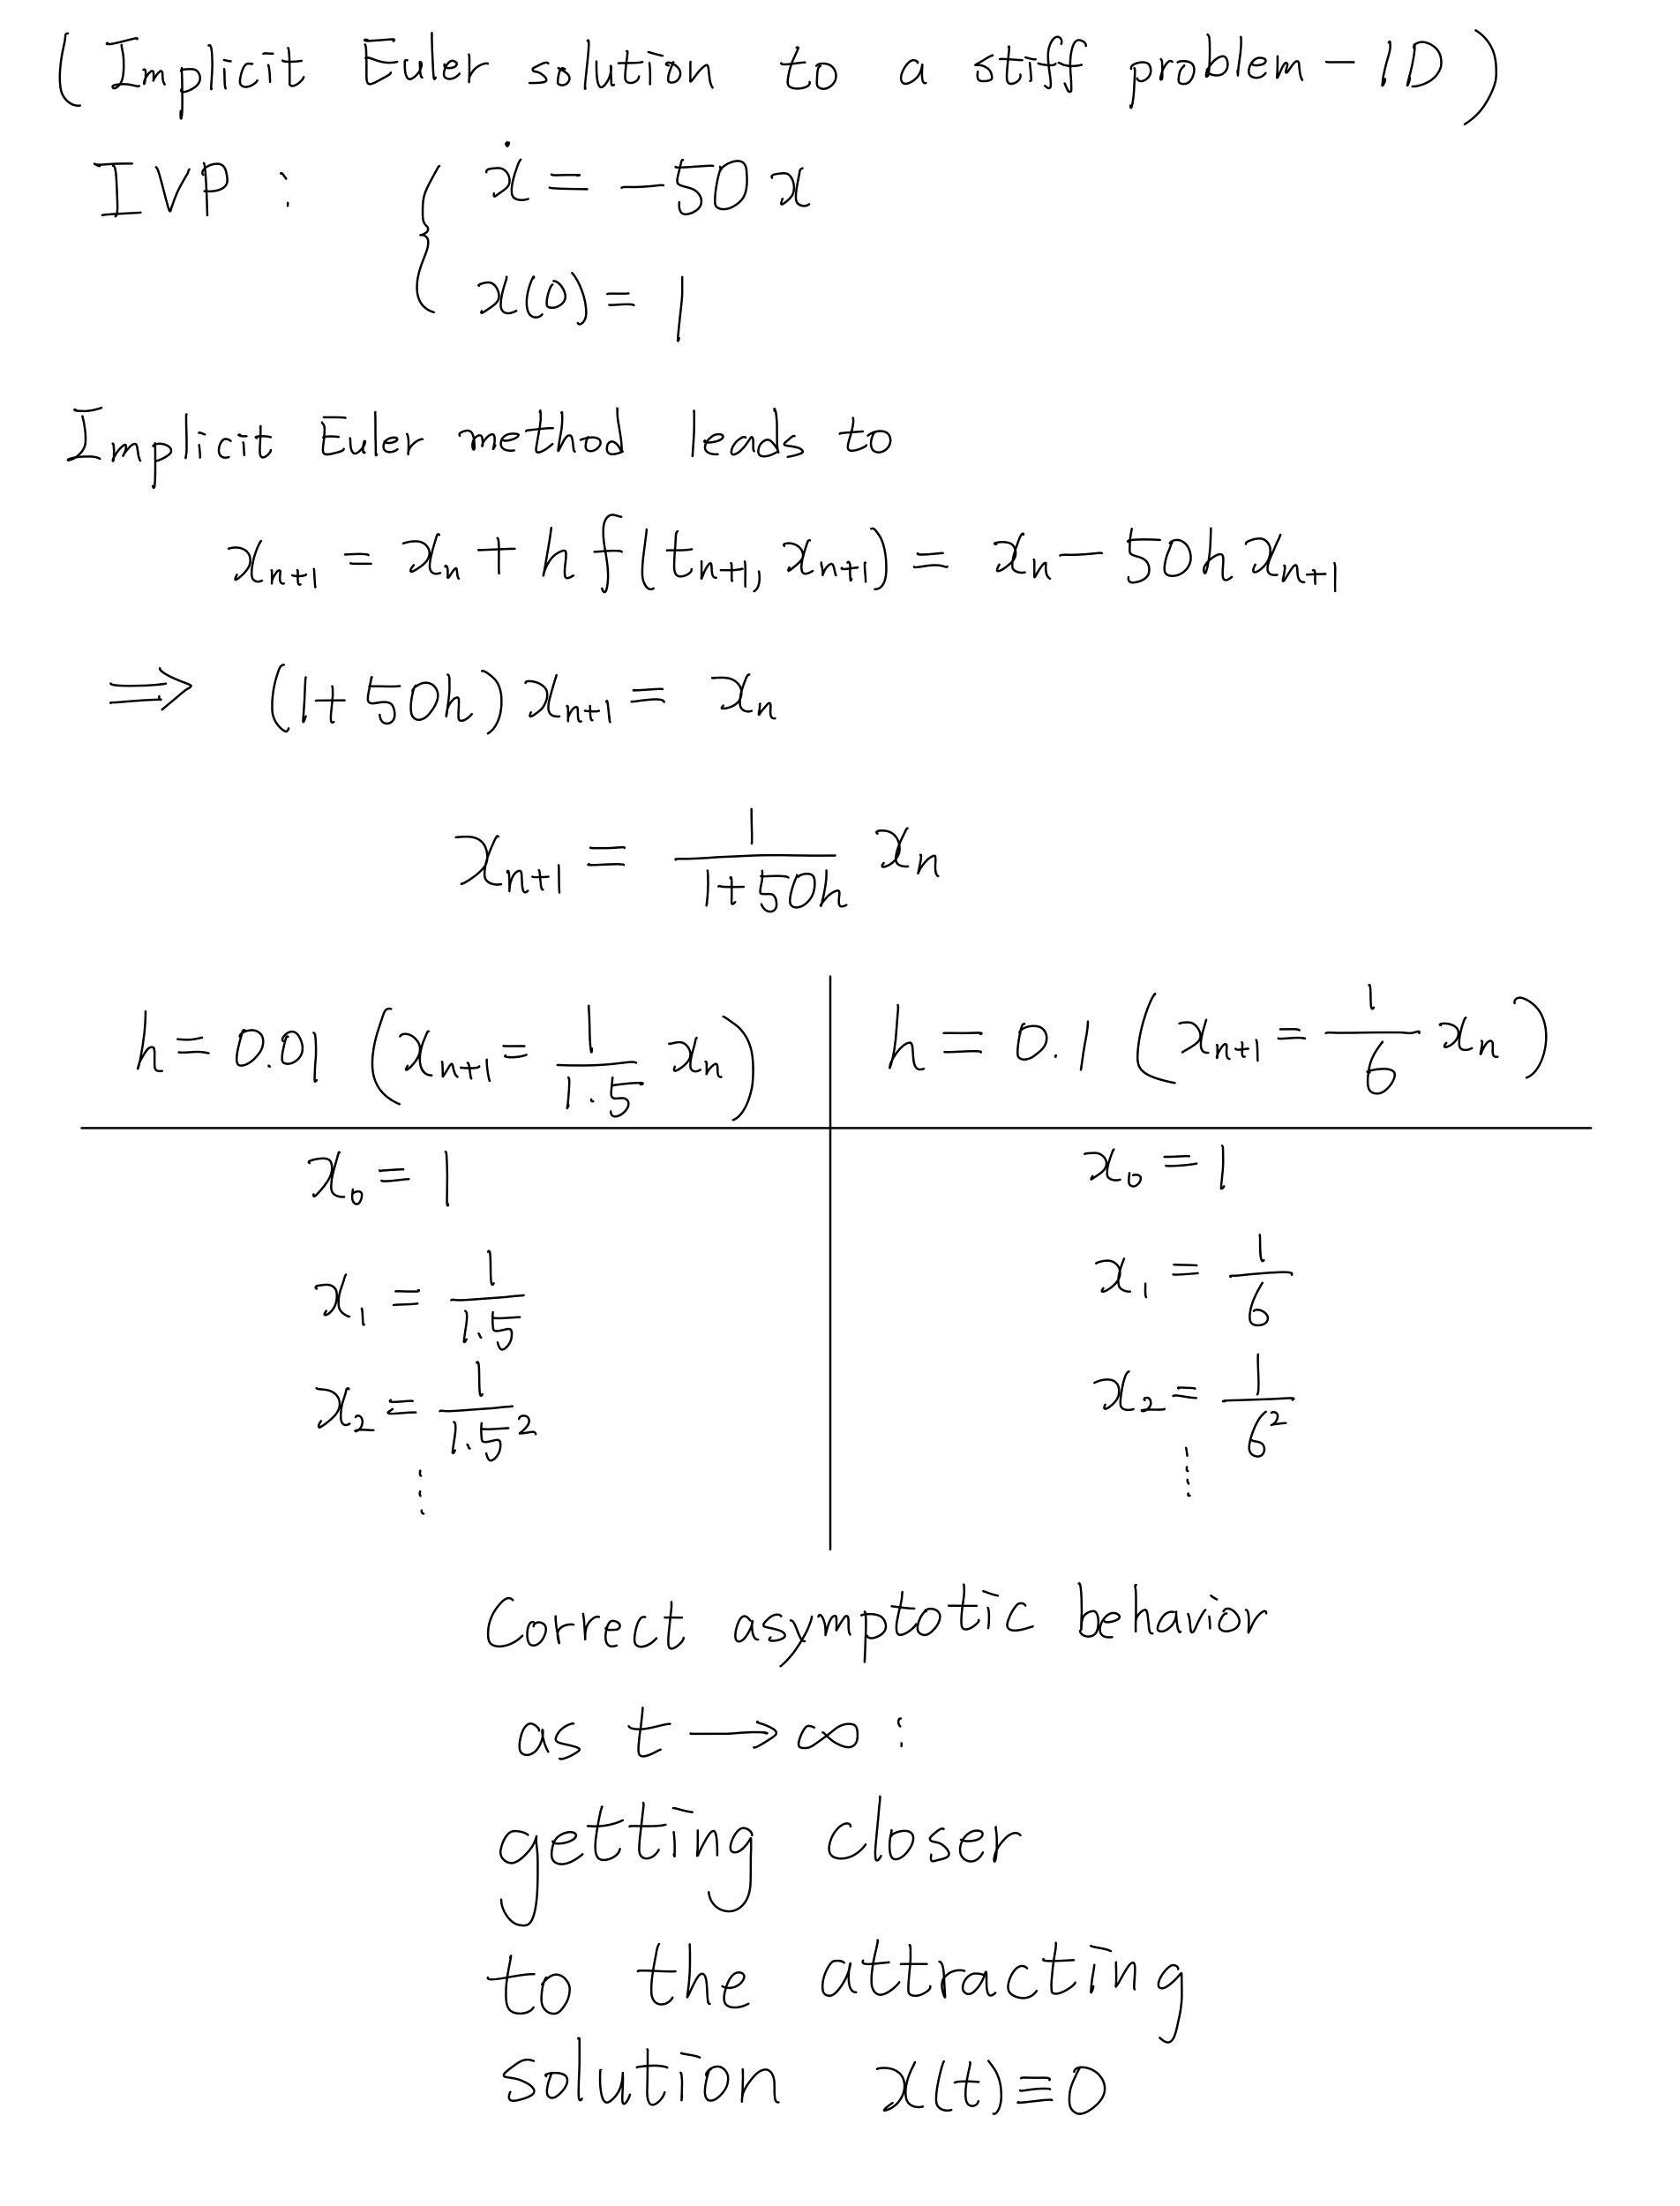 (Implicit Euler solution to a stiff problem - 1D)
IVP : { ẋ = -50x
x(0) = 1
Implicit Euler method leads to
x_{n+1} = x_n + h f(t_{n+1}, x_{n+1}) = x_n - 50h x_{n+1}
⟹ (1+50h) x_{n+1} = x_n
x_{n+1} = \frac{1}{1+50h} x_n
h = 0.01 (x_{n+1} = \frac{1}{1.5} x_n)
x_0 = 1
x_1 = \frac{1}{1.5}
x_2 = \frac{1}{1.5^2}
⋮
h = 0.1 (x_{n+1} = \frac{1}{6} x_n)
x_0 = 1
x_1 = \frac{1}{6}
x_2 = \frac{1}{6^2}
⋮
Correct asymptotic behavior
as t → ∞ :
getting closer
to the attracting
solution x(t) ≡ 0